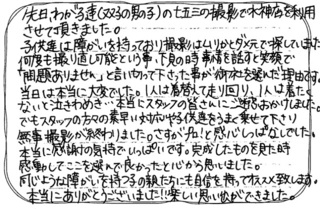 先日、わが子達(双子の男の子)の七五三の撮影で水神店を利用
させて頂きました。
子供達は障がいを持っており撮影はムリかとダメ元で探していました
何度も撮り直し可能という事、下見の時事情を話すと笑顔で
「問題ありません」と言い切って下さった事が決め手を選んだ理由です。
当日は本当に大変でした。1人は着替えて走り回り、1人は着たく
ないと泣きわめき…本当にスタッフの皆さんにご迷惑おかけしました。
でもスタッフの方々の素早い対応やら子供達をうまく乗せて下さり
無事撮影が終わりました。さすがプロ!と感心しっぱなしでした。
本当に感謝の気持でいっぱいです。完成したものを見た時
感動してここを選んで良かったと心から思いました。
同じような障がいを持つ子の親たちにも自信を持っておススメ致します。
本当にありがとうございました!!楽しい思い出ができました。